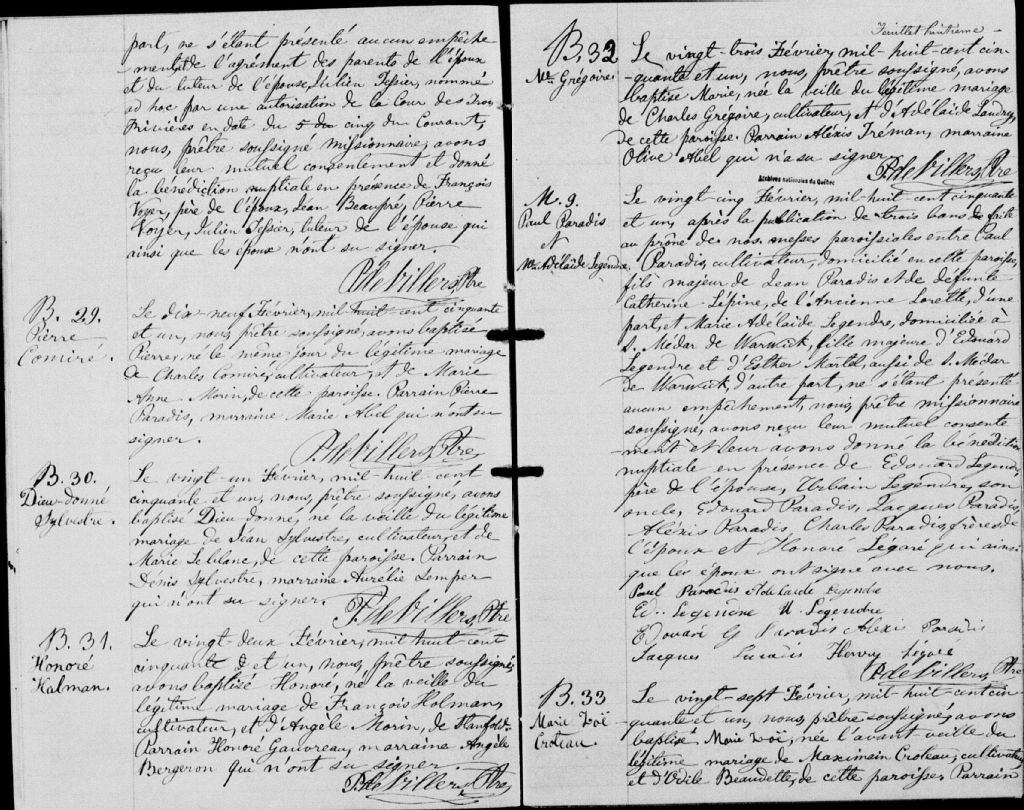 part, ne s'étant présenté aucun empêche
ment et de l'agrément des parents de l'époux
et du tuteur de l'épouse, Julien Tessier, nommé
ad hoc par une autorisation de la Cour des Trois
Rivières en date du 5 du cinq du Courant,
nous, prêtre soussigné missionnaire, avons
reçu leur mutuel consentement et donné
la bénédiction nuptiale en présence de François
Voyer, père de l'époux, Jean Beaupré, Pierre
Voyer, Julien Tessier, tuteur de l'épouse qui
ainsi que les époux n'ont su signer.
P. de Villers, Ptre
B. 29.
Pierre
Comiré.
Le dix-neuf Février, mil-huit-cent cinquante
et un, nous, prêtre soussigné, avons baptisé
Pierre, né le même jour du légitime mariage
de Charles Comiré, cultivateur, et de Marie
Anne Morin, de cette paroisse. Parrain Pierre
Paradis, marraine Marie Abel qui n'ont su
signer.
P. de Villers, Ptre
B. 30.
Dieu-donné
Sylvestre.
Le vingt-un Février, mil-huit-cent
cinquante et un, nous, prêtre soussigné, avons
baptisé Dieu-donné, né la veille du légitime
mariage de Jean Sylvestre, cultivateur, et de
Marie Leblanc, de cette paroisse. Parrain
Denis Sylvestre, marraine Aurélie Lemper
qui n'ont su signer.
P. de Villers, Ptre
B. 31.
Honoré
Halman.
Le vingt deux Février, mil-huit-cent
cinquante et un, nous, prêtre soussigné,
avons baptisé Honoré, né la veille du
légitime mariage de François Holman,
cultivateur, et d'Angèle Morin, de Stanfold.
Parrain Honoré Gauvreau, marraine Angèle
Bergeron qui n'ont su signer.
P. de Villers, Ptre
Feuillet huitième
B. 32
Mie Grégoire
Le vingt-trois Février, mil-huit-cent cin-
quante et un, nous, prêtre soussigné, avons
baptisé Marie, née la veille du légitime mariage
de Charles Grégoire, cultivateur, et d'Adélaïde Landry,
de cette paroisse. Parrain Alexis Tréman, marraine
Olive Abel qui n'a su signer.
P. de Villers, Ptre
Archives nationales du Québec
M. 9.
Paul Paradis
et
Mie Adélaïde Legendre.
Le vingt-cinq Février, mil-huit-cent cinquante
et un, après la publication de trois bans de faite
au prône de nos messes paroissiales entre Paul
Paradis, cultivateur, domicilié en cette paroisse,
fils majeur de Jean Paradis et de défunte
Catherine Lépine, de l'Ancienne Lorette, d'une
part, et Marie Adélaïde Legendre, domiciliée à
S. Médar de Warwick, fille majeure d'Edouard
Legendre et d'Esther Martel, aussi de S. Médar
de Warwick, d'autre part, ne s'étant présenté
aucun empêchement, nous, prêtre missionnaire
soussigné, avons reçu leur mutuel consente
-ment et leur avons donné la bénédiction
nuptiale en présence de Edouard Legendre,
père de l'épouse, Urbain Legendre, son
oncle, Edouard Paradis, Jacques Paradis,
Alexis Paradis, Charles Paradis, frères de
l'époux et Honoré Légaré qui ainsi
que les époux ont signé avec nous.
Paul Paradis Adelaide Legendre
Ed. Legendre U. Legendre
Edouard G Paradis Alexis Paradis
Jacques Paradis Legaré
P. de Villers, Ptre
B. 33
Marie Zoé
Croteau.
Le vingt-sept Février, mil-huit-cent cin-
quante et un, nous, prêtre soussigné, avons
baptisé Marie Zoé, née l'avant veille du
légitime mariage de Maximain Croteau, cultivateur
et d'Odile Beaudette, de cette paroisse. Parrain